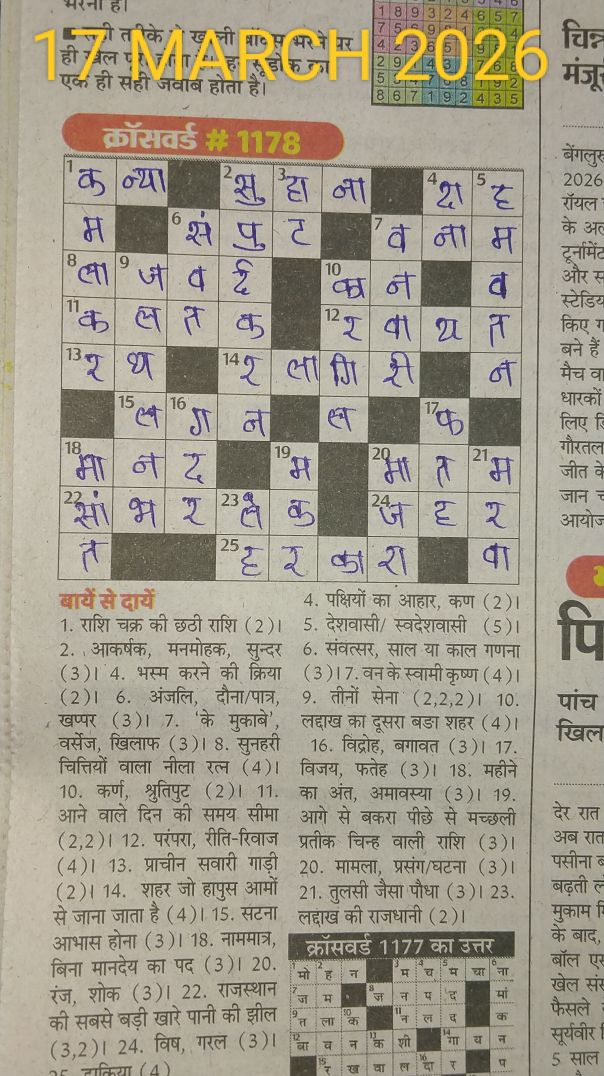 भरना है।
17 MARCH 2026
ही खेल
एक ही सही जवाब होता है।
1 8 9 3 2 4 6 5 7
8 6 7 1 9 2 4 3 5
चिन्न
मंजू
क्रॉसवर्ड # 1178
1 क न्या 2 सु 3 हा ना 4 दा 5 ह
म 6 सं पु ट 7 व ना म
8 ला 9 ज व र्द 10 का न व
11 क ल त क 12 र वा य त
13 र थ 14 र त्ना गि री न
15 ल 16 ग न ल 17 फ
18 मा न द 19 म 20 मा त 21 म
22 सां भ र 23 ले क 24 ज ह र
त 25 ह र का रा वा
बायें से दायें
1. राशि चक्र की छठी राशि (2)।
2. आकर्षक, मनमोहक, सुन्दर
(3)। 4. भस्म करने की क्रिया
(2)। 6. अंजलि, दौना/पात्र,
खप्पर (3)। 7. 'के मुकाबे',
वर्सेज, खिलाफ (3)। 8. सुनहरी
चित्तियों वाला नीला रत्न (4)।
10. कर्ण, श्रुतिपुट (2)। 11.
आने वाले दिन की समय सीमा
(2,2)। 12. परंपरा, रीति-रिवाज
(4)। 13. प्राचीन सवारी गाड़ी
(2)। 14. शहर जो हापुस आमों
से जाना जाता है (4)। 15. सटना
आभास होना (3)। 18. नाममात्र,
बिना मानदेय का पद (3)। 20.
रंज, शोक (3)। 22. राजस्थान
की सबसे बड़ी खारे पानी की झील
(3,2)। 24. विष, गरल (3)।
25. डाकिया (4)
4. पक्षियों का आहार, कण (2)।
5. देशवासी/ स्वदेशवासी (5)।
6. संवत्सर, साल या काल गणना
(3)।7. वन के स्वामी कृष्ण (4)।
9. तीनों सेना (2,2,2)। 10.
लद्दाख का दूसरा बडा शहर (4)।
16. विद्रोह, बगावत (3)। 17.
विजय, फतेह (3)। 18. महीने
का अंत, अमावस्या (3)। 19.
आगे से बकरा पीछे से मच्छली
प्रतीक चिन्ह वाली राशि (3)।
20. मामला, प्रसंग/घटना (3)।
21. तुलसी जैसा पौधा (3)। 23.
लद्दाख की राजधानी (2)।
क्रॉसवर्ड 1177 का उत्तर
मो ह न म च म चा ना
ज म ज न प द मां
त ला क न ल द क
बा च न क शी गा य न
र ख वा ल दा र प
बेंगलुरु
2026
रॉयल
के अल
टूर्नामेंट
और स
स्टेडिय
किए ग
बने हैं
मैच वा
धारकों
लिए डि
गौरतल
जीत के
जान च
आयोज
पि
पांच
खिल
देर रात
अब रात
पसीना ब
बढ़ती ल
मुकाम मि
के बाद,
बॉल एस
खेल संस
फैसले
सूर्यवीर
5 साल